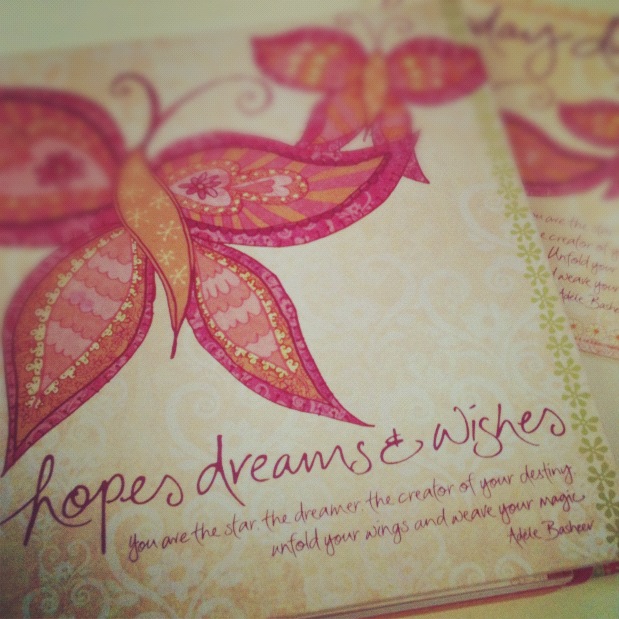 day d
hopes dreams & wishes
you are the star. the dreamer. the creator of your destiny.
unfold your wings and weave your magic
Adele Basheer
you are the star
creator of
Unfold your
weave your
Adele Bashe